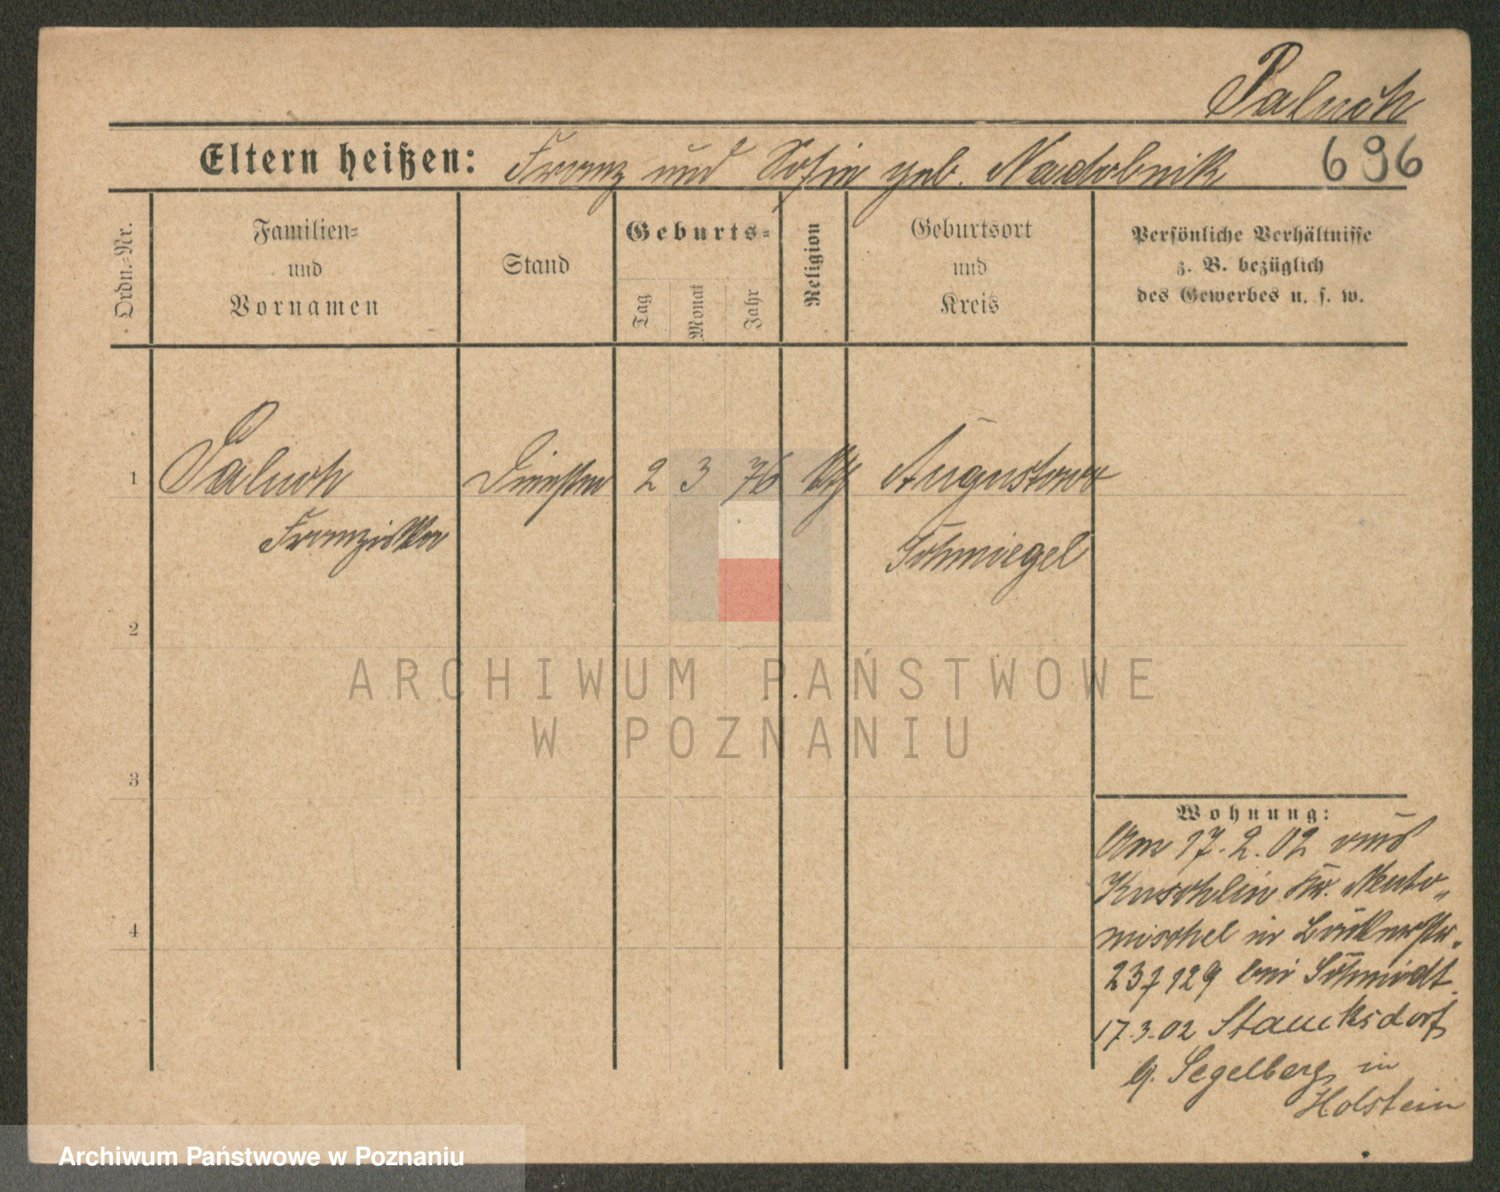 Paluch
Eltern heißen: Franz und Sofie geb. Nadobnik 696
Ordn.-Nr.
Familien-
und
Vornamen
Stand
Geburts-
Tag
Monat
Jahr
Religion
Geburtsort
und
Kreis
Persönliche Verhältnisse
z. B. bezüglich
des Gewerbes u. s. w.
1 Paluch 2 3 76 Augustowo
Franziska Schmiegel
2
3
4
Wohnung:
Am 17.2.02 aus
Kuschlin Kr. Neuto-
mischel in
bei Schmidt.
17.3.02
Segelberg in
Holstein
ARCHIWUM PAŃSTWOWE
W POZNANIU
Archiwum Państwowe w Poznaniu